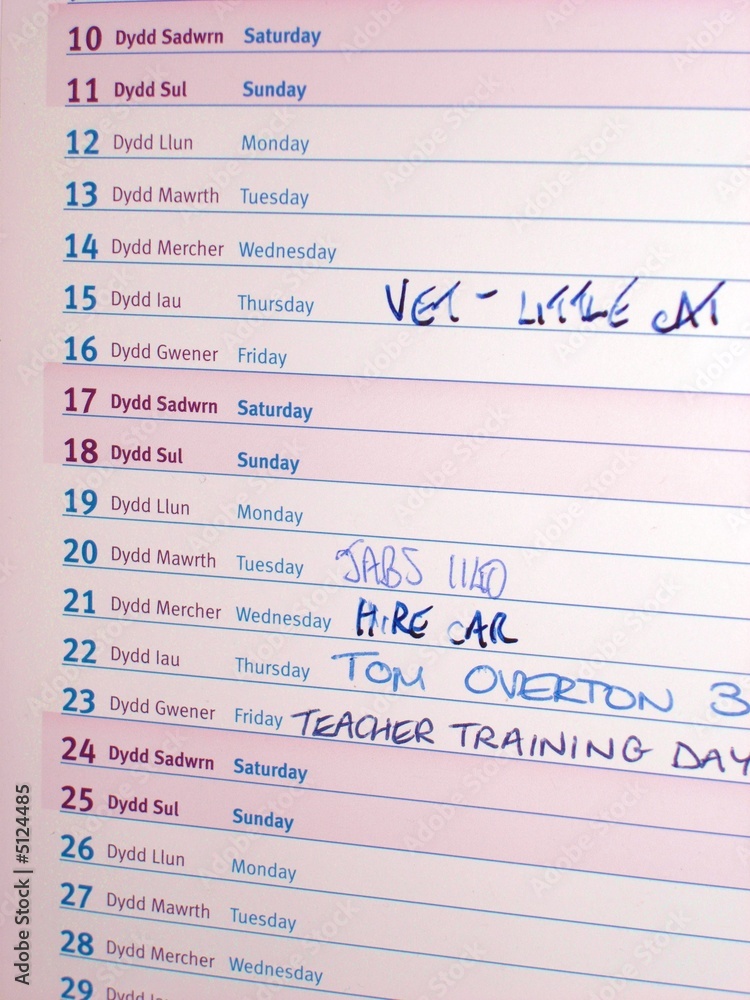 10 Dydd Sadwrn Saturday
11 Dydd Sul Sunday
12 Dydd Llun Monday
13 Dydd Mawrth Tuesday
14 Dydd Mercher Wednesday
15 Dydd Iau Thursday VET - LITTLE CAT
16 Dydd Gwener Friday
17 Dydd Sadwrn Saturday
18 Dydd Sul Sunday
19 Dydd Llun Monday
20 Dydd Mawrth Tuesday JABS 1140
21 Dydd Mercher Wednesday HIRE CAR
22 Dydd Iau Thursday TOM OVERTON 3
23 Dydd Gwener Friday TEACHER TRAINING DAY
24 Dydd Sadwrn Saturday
25 Dydd Sul Sunday
26 Dydd Llun Monday
27 Dydd Mawrth Tuesday
28 Dydd Mercher Wednesday
29 Dydd
Adobe Stock | #5124485